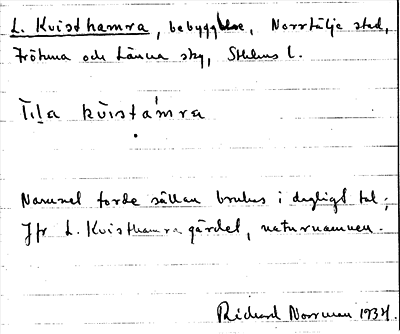 L. Kvisthamra, bebyggelse, Norrtälje stad,
Frötuna och Länna skg, Sthlms l.
Tīḷa kv̄ista̍mra
Namnet torde sällan brukas i dagligt tal;
Jfr L. Kvisthamragärdet, naturnamnen.
Richard Norrman 1934.